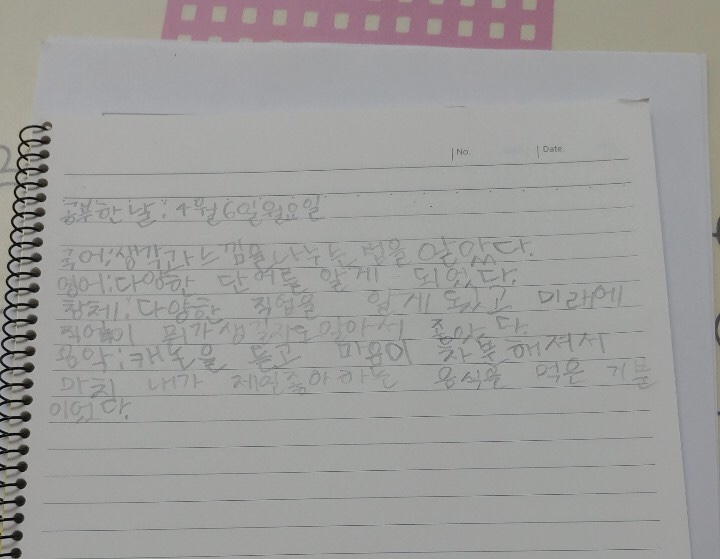 No. Date.
공부한 날: 4월 6일 월요일
국어:생각과 느낌을 나누는 법을 알았다.
영어:다양한 단어를 알게 되었다.
창체:다양한 직업을 알게 되었고 미래에
직업이 뭐가 생길지도 알아서 좋았다.
음악:캐논을 듣고 마음이 차분해져서
마치 내가 제일 좋아하는 음식을 먹은 기분
이었다.